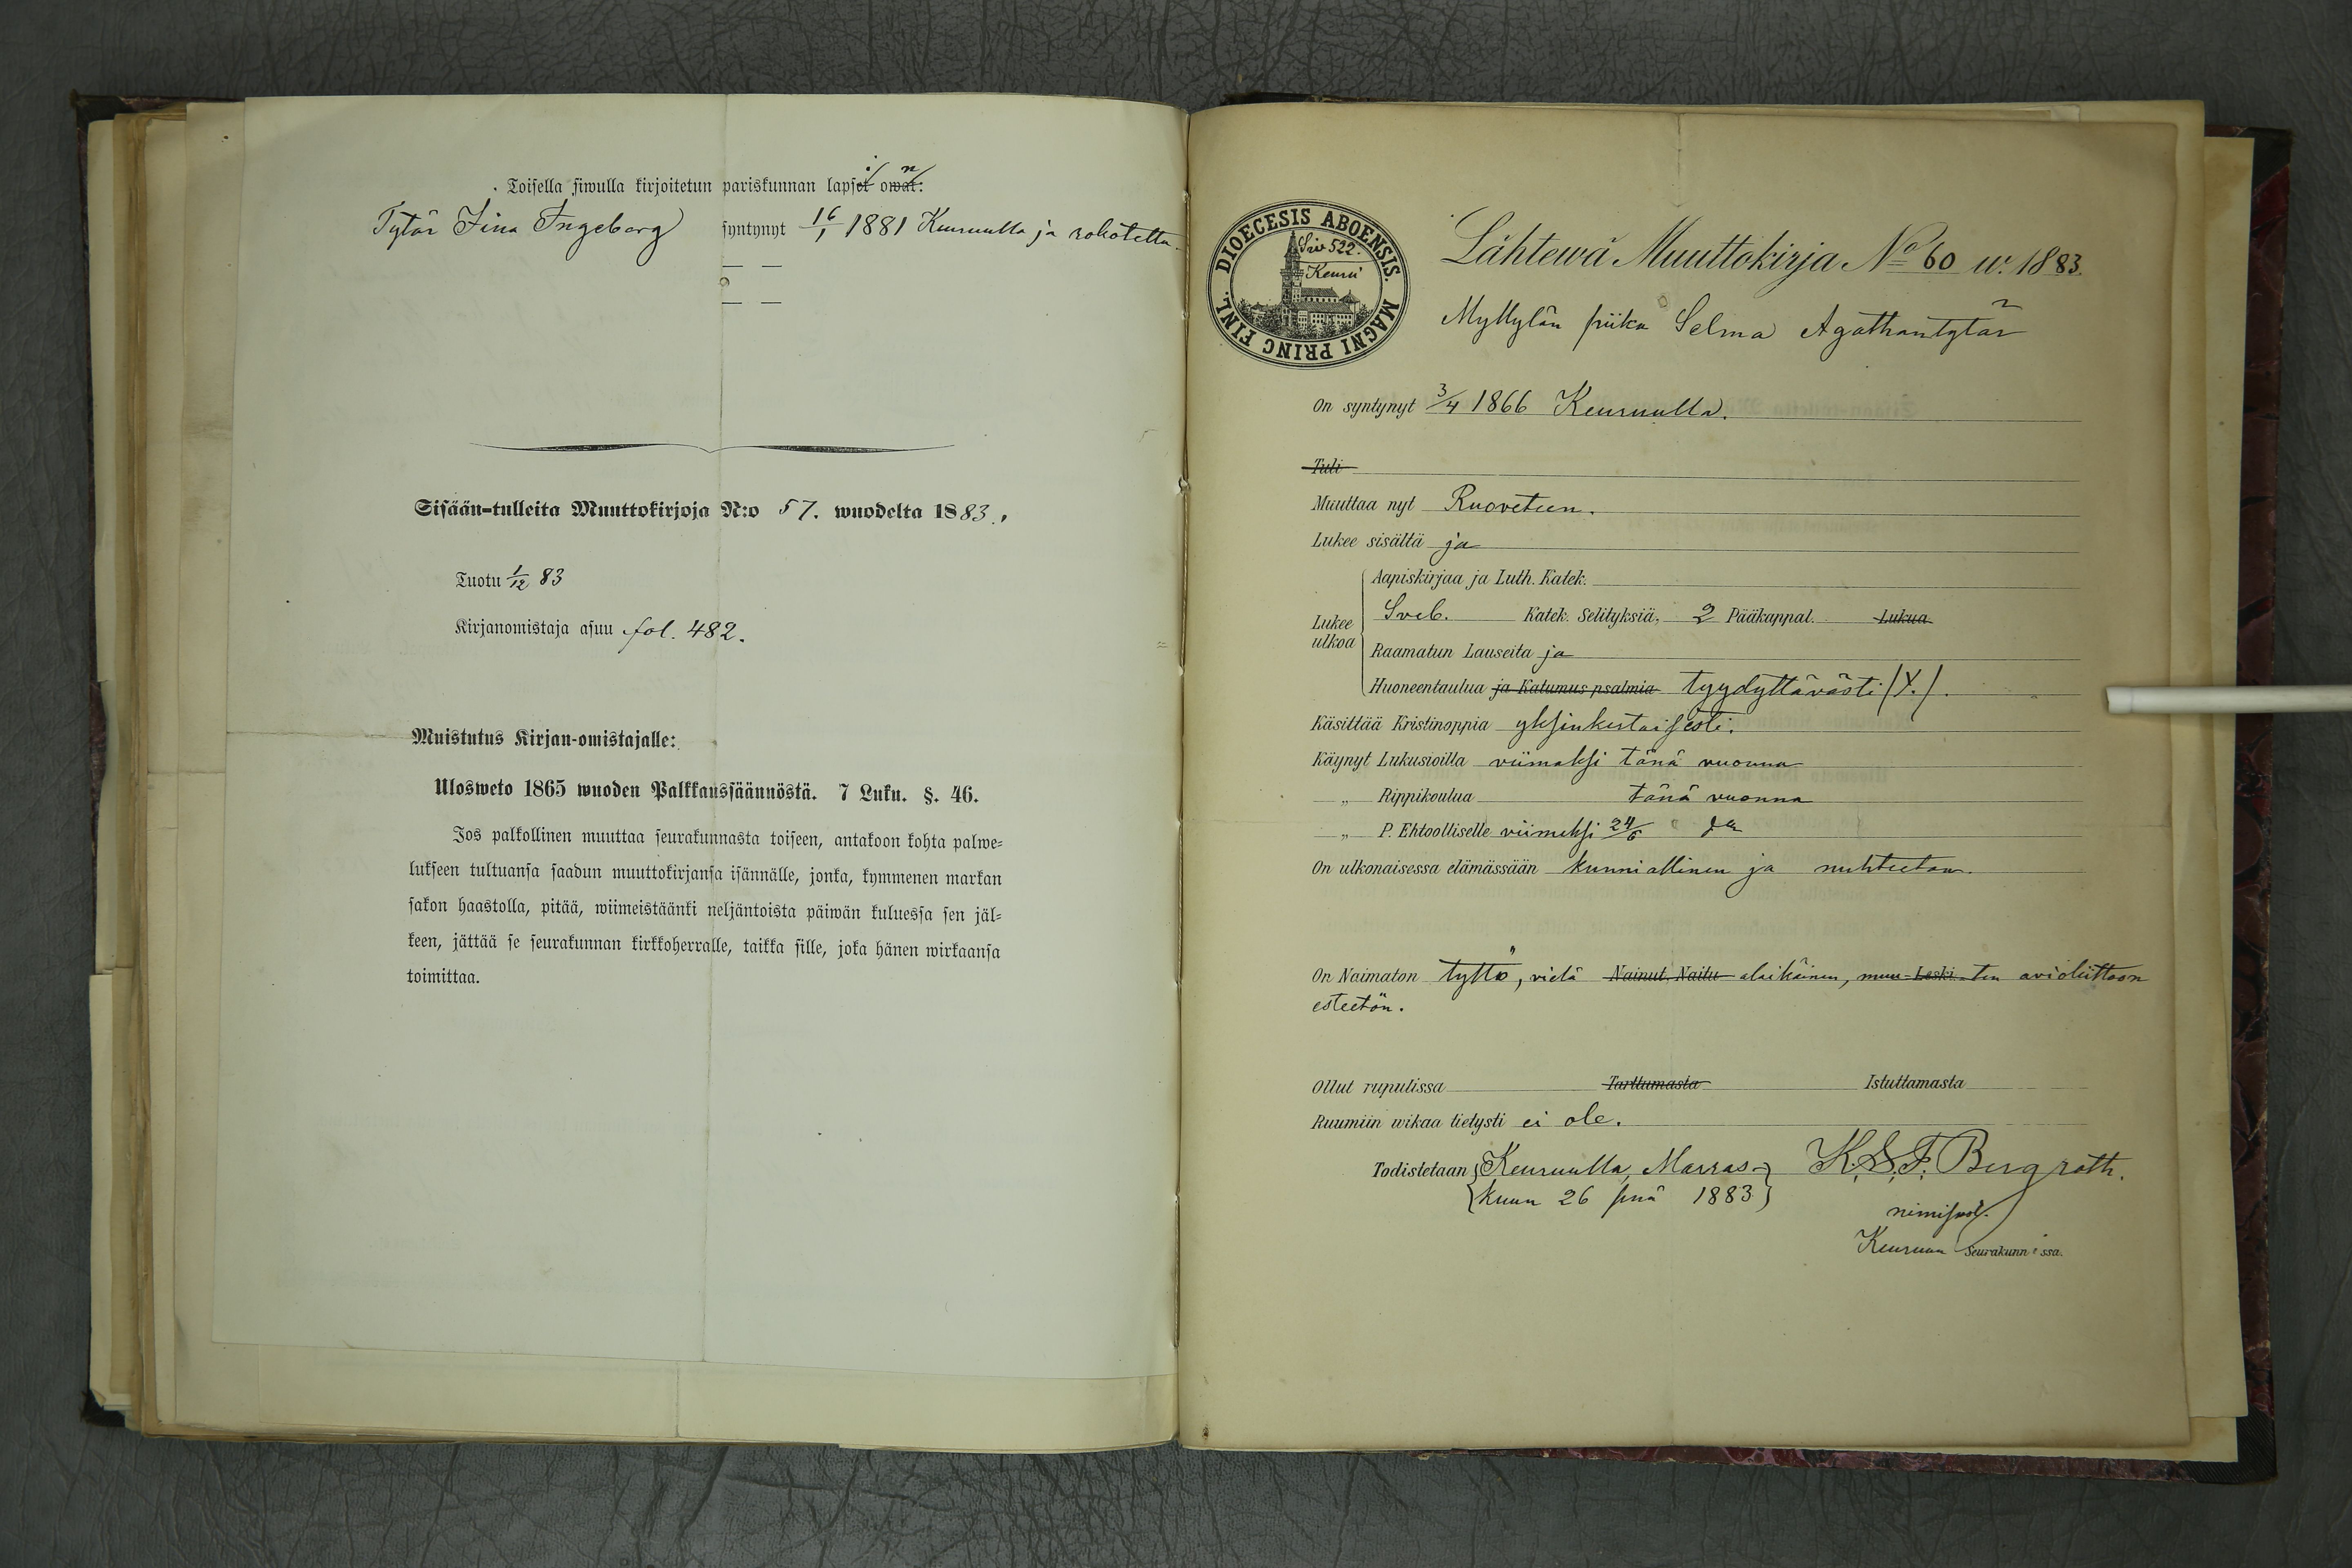 Toisella siwulla kirjoitetun pariskunnan lapset i owat n:
Tytär Fina Ingeborg syntynyt 16/1 1881 Keuruulla ja rokotettu.
Sisään-tulleita Muuttokirjoja N:o 57. wuodelta 1883.
Tuotu 1/12 83
Kirjanomistaja asuu fol. 482.
Muistutus Kirjan-omistajalle:
Ulosweto 1865 wuoden Palkkaussäännöstä. 7 Luku. §. 46.
Jos palkollinen muuttaa seurakunnasta toiseen, antakoon kohta palwe=
lukseen tultuansa saadun muuttokirjansa isännälle, jonka, kymmenen markan
sakon haastolla, pitää, wiimeistäänki neljäntoista päiwän kuluessa sen jäl=
keen, jättää se seurakunnan kirkkoherralle, taikka sille, joka hänen wirkaansa
toimittaa.
DIOECESIS ABOENSIS. MAGNI PRINC FINL.
Siv 522.
Keuru
Lähtewä Muuttokirja No 60 w. 1883.
Myllylän piika Selma Agathantytär
On syntynyt 3/4 1866 Keuruulla.
Tuli
Muuttaa nyt Ruoveteen.
Lukee sisältä ja
Lukee ulkoa
Aapiskirjaa ja Luth. Katek.
Sveb. Katek. Selityksiä, 2 Pääkappal. Lukua
Raamatun Lauseita ja
Huoneentaulua ja Katumus psalmia tyydyttävästi
Käsittää Kristinoppia yksinkertaisesti.
Käynyt Lukusioilla viimeksi tänä vuonna
„ Rippikoulua tänä vuonna
„ P. Ehtoolliselle viimeksi 24/6
On ulkonaisessa elämässään kunniallinen ja nuhteeton.
On Naimaton tyttö, vielä Nainut, Naitu alaikäinen, muu- Leski ten avioliittoon
esteetön.
Ollut rupulissa Tarttumasta Istuttamasta
Ruumiin wikaa tietysti ei ole.
Todistetaan Keuruulla, Marras- K. S. F. Bergroth.
kuun 26 pnä 1883
Keuruun Seurakunnassa.